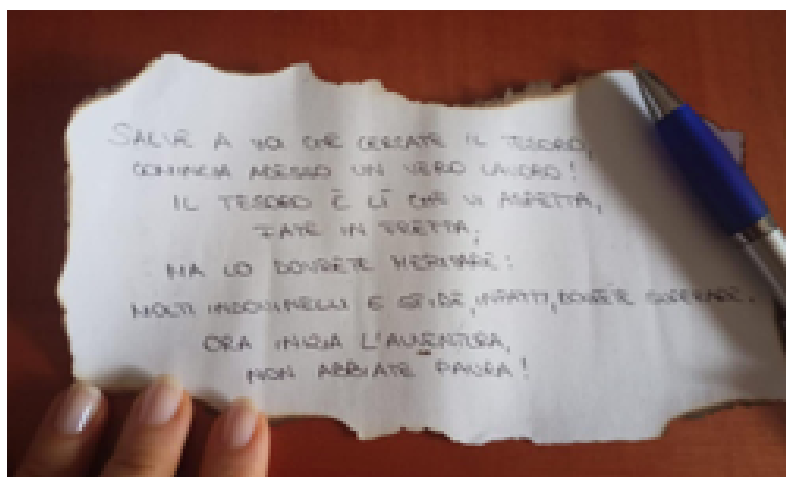 SALVE A VOI CHE CERCATE IL TESORO,
COMINCIA ADESSO UN VERO LAVORO!
IL TESORO È LÌ CHE VI ASPETTA,
FATE IN FRETTA,
MA LO DOVRETE MERITARE:
MOLTI INDOVINELLI E SFIDE, INFATTI, DOVRETE SUPERARE.
ORA INIZIA L'AVVENTURA,
NON ABBIATE PAURA!